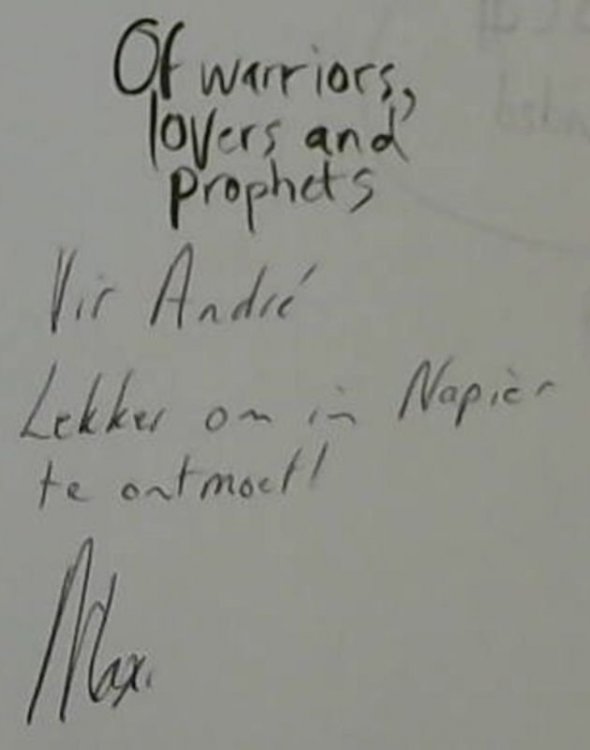 Of warriors,
lovers and
prophets
Vir André
Lekker om in Napier
te ontmoet!
Max.